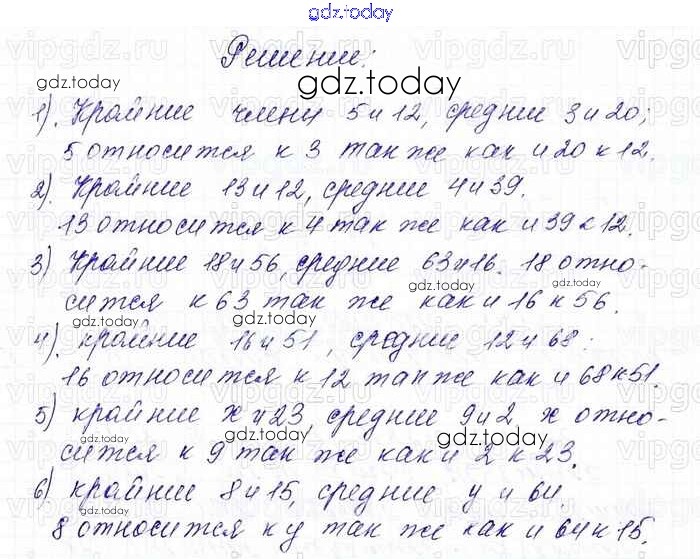 gdz.today
Решение:
gdz.today
gdz.today
1). Крайние члени 5 и 12, средние 3 и 20;
5 относится к 3 так же как и 20 к 12.
2). Крайние 13 и 12, средние 4 и 39.
13 относится к 4 так же как и 39 к 12.
3) Крайние 18 и 56, средние 63 и 16. 18 отно-
gdz.today
gdz.today
сится к 63 так же как и 16 к 56.
gdz.today
4). крайние 16 и 51, средние 12 и 68:
16 относится к 12 так же как и 68 к 51.
5) крайние x и 23, средние 9 и 2, x отно-
gdz.today
gdz.today
gdz.today
сится к 9 так же как и 2 к 23.
6) крайние 8 и 15, средние y и 64.
8 относится к y так же как и 64 к 15.